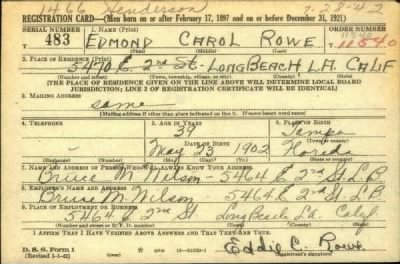 1466 Henderson
7-28-42
REGISTRATION CARD—(Men born on or after February 17, 1897 and on or before December 31, 1921)
SERIAL NUMBER 1. NAME (Print) ORDER NUMBER
483 EDMOND CAROL ROWE 11540
2. PLACE OF RESIDENCE (Print)
5470 E 2nd St. LONG BEACH L.A. CALIF
(Number and street) (Town, township, village, or city) (County) (State)
[THE PLACE OF RESIDENCE GIVEN ON THE LINE ABOVE WILL DETERMINE LOCAL BOARD
JURISDICTION; LINE 2 OF REGISTRATION CERTIFICATE WILL BE IDENTICAL]
3. MAILING ADDRESS
same
[Mailing address if other than place indicated on line 2. If same insert word same]
4. TELEPHONE 5. AGE IN YEARS 6. PLACE OF BIRTH
39 Tampa
DATE OF BIRTH
May 23 1902 Floreda
7. NAME AND ADDRESS OF PERSON WHO WILL ALWAYS KNOW YOUR ADDRESS
Bruce M. Wilson - 5464 E 2nd St L.B.
8. EMPLOYER'S NAME AND ADDRESS
Bruce M. Wilson 5464 E 2nd St L.B.
9. PLACE OF EMPLOYMENT OR BUSINESS
5464 E 2nd St Long Beach La. Calif.
I AFFIRM THAT I HAVE VERIFIED ABOVE ANSWERS AND THAT THEY ARE TRUE.
D. S. S. Form 1
(Revised 1-1-42)
Eddie C. Rowe
(Registrant's signature)